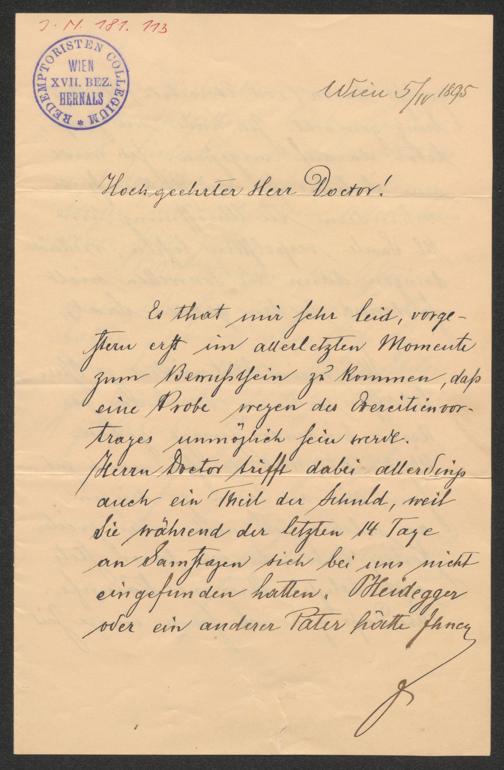 J. N. 181.113
REDEMPTORISTEN COLLEGIUM
WIEN
XVII. BEZ.
HERNALS
Wien 5/IV 1895
Hochgeehrter Herr Doctor!
Es that mir sehr leid, vorge-
stern erst im allerletzten Momente
zum Bewußtsein zu kommen, daß
eine Probe wegen des Exercitienvor-
trages unmöglich sein werde.
Herrn Doctor trifft dabei allerdings
auch ein Theil der Schuld, weil
Sie während der letzten 14 Tage
an Samstagen sich bei uns nicht
eingefunden hatten. P. Heidegger
oder ein anderer Pater hätte Ihnen